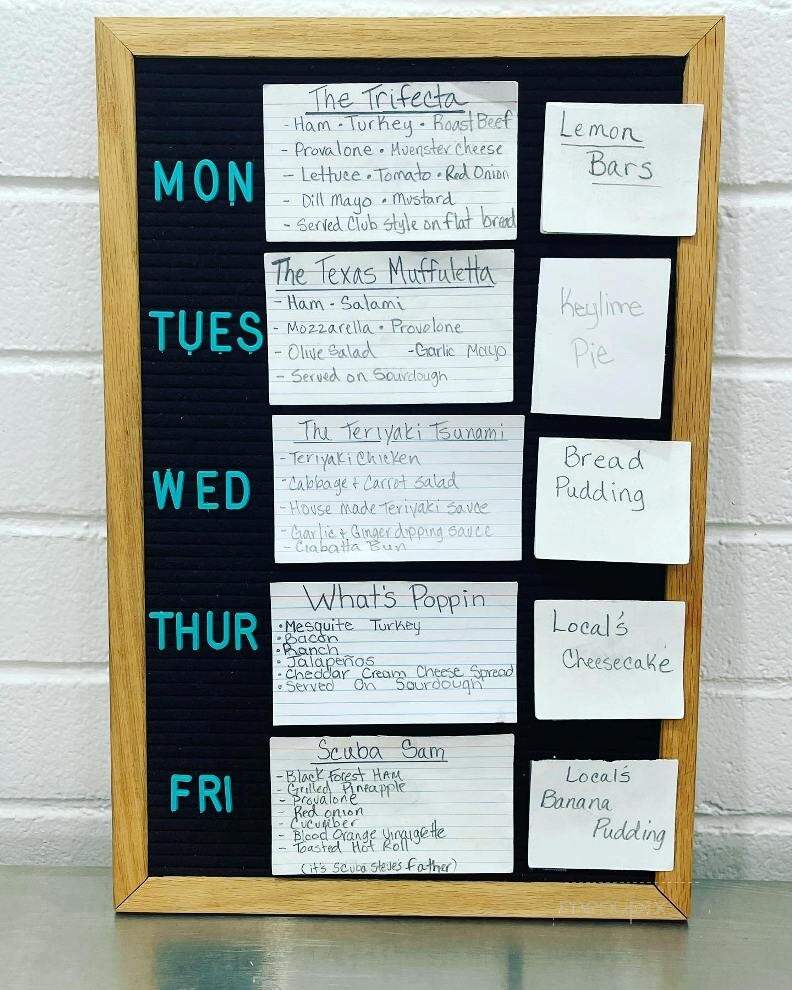 MON
The Trifecta
- Ham • Turkey • Roast Beef
- Provalone • Muenster Cheese
- Lettuce • Tomato • Red Onion
- Dill Mayo • Mustard
- Served Club Style on flat bread
Lemon
Bars
TUES
The Texas Muffuletta
- Ham - Salami
- Mozzarella • Provolone
- Olive Salad - Garlic Mayo
- Served on Sourdough
Keylime
Pie
WED
The Teriyaki Tsunami
- Teriyaki Chicken
- Cabbage + Carrot Salad
- House made Teriyaki Sauce
- Garlic + Ginger dipping Sauce
- Ciabatta Bun
Bread
Pudding
THUR
What's Poppin
• Mesquite Turkey
• Bacon
• Ranch
• Jalapeños
• Cheddar Cream Cheese Spread
• Served On Sourdough
Local's
Cheesecake
FRI
Scuba Sam
- Black Forest Ham
- Grilled Pineapple
- Provalone
- Red onion
- Cucumber
- Blood Orange Vinaigrette
- Toasted Hot Roll
(it's Scuba Steves father)
Local's
Banana
Pudding